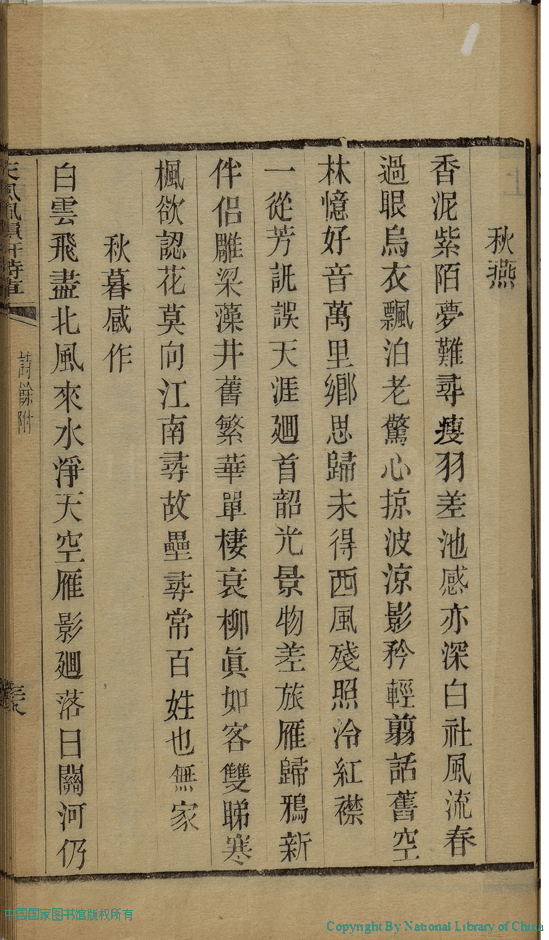 秋燕
香泥紫陌夢難尋瘦羽差池感亦深白社風流春
過眼烏衣飄泊老驚心掠波涼影矜輕翦話舊空
林憶好音萬里鄉思歸未得西風殘照冷紅襟
一從芳訊誤天涯廻首韶光景物差旅雁歸鴉新
伴侶雕梁藻井舊繁華單棲衰柳眞如客雙睇寒
楓欲認花莫向江南尋故壘尋常百姓也無家
秋暮感作
白雲飛盡北風來水淨天空雁影廻落日關河仍
詩餘附
中国国家图书馆版权所有
Copyright By National Library of China